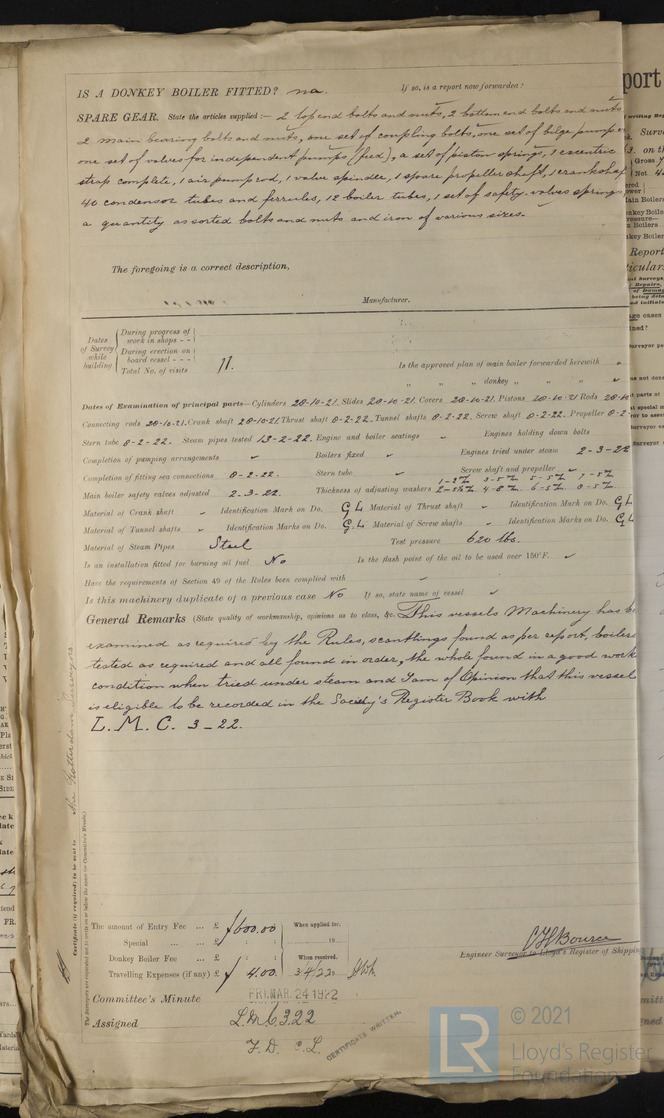 IS A DONKEY BOILER FITTED? no. If so, is a report now forwarded?
SPARE GEAR. State the articles supplied :— 2 top end bolts and nuts, 2 bottom end bolts and nuts
2 main bearing bolts and nuts, one set of coupling bolts, one set of bilge pump
one set of valves for independent pumps (feed), a set of piston springs, 1 eccentric
strap complete, 1 air pump rod, 1 valve spindle, 1 spare propeller shaft, 1 crankshaf
40 condensor tubes and ferrules, 12 boiler tubes, 1 set of safety valves springs
a quantity assorted bolts and nuts and iron of various sizes.
The foregoing is a correct description,
Manufacturer.
Dates of Survey while building
During progress of work in shops - -
During erection on board vessel - - -
Total No. of visits 11.
Is the approved plan of main boiler forwarded herewith
" " " donkey " " "
Dates of Examination of principal parts—Cylinders 28-10-21. Slides 28-10-21. Covers 28-10-21. Pistons 28-10-21 Rods 28-10
Connecting rods 28-10-21. Crank shaft 28-10-21. Thrust shaft 8-2-22. Tunnel shafts 8-2-22. Screw shaft 8-2-22. Propeller 8-2
Stern tube 8-2-22. Steam pipes tested 13-2-22. Engine and boiler seatings Engines holding down bolts
Completion of pumping arrangements Boilers fixed Engines tried under steam 2-3-22
Completion of fitting sea connections 8-2-22. Stern tube Screw shaft and propeller
Main boiler safety valves adjusted 2.3.22. Thickness of adjusting washers
Material of Crank shaft Identification Mark on Do. G L Material of Thrust shaft Identification Mark on Do. G L
Material of Tunnel shafts Identification Marks on Do. G.L Material of Screw shafts Identification Marks on Do. G L
Material of Steam Pipes Steel Test pressure 620 lbs.
Is an installation fitted for burning oil fuel No Is the flash point of the oil to be used over 150°F.
Have the requirements of Section 49 of the Rules been complied with
Is this machinery duplicate of a previous case No If so, state name of vessel
General Remarks (State quality of workmanship, opinions as to class, &c. This vessels Machinery has be
examined as required by the Rules, scantlings found as per report, boilers
tested as required and all found in order, the whole found in a good work
condition when tried under steam and I am of Opinion that this vessel
is eligible to be recorded in the Society's Register Book with
L.M.C. 3-22.
Certificate (if required) to be sent to the Rotterdam Surveyors
The amount of Entry Fee ... £ 600.00 When applied for,
Special ... ... £ : : 19
Donkey Boiler Fee ... £ : : When received,
Travelling Expenses (if any) £ 4.00. 3.4.22
Engineer Surveyor to Lloyd's Register of Shipping
Committee's Minute FRI. MAR. 24 1922
Assigned L.M.C. 3.22
F.D. C.L.
CERTIFICATE WRITTEN.
LR © 2021
Lloyd's Register
Foundation